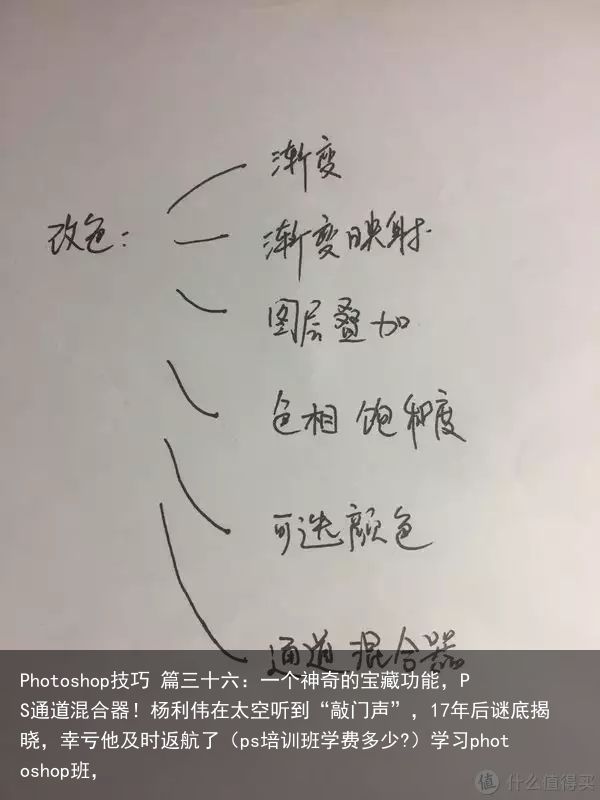 渐变
改色：
渐变映射
图层叠加
色相 饱和度
可选颜色
通道混合器
Photoshop技巧 篇三十六：一个神奇的宝藏功能，P
S通道混合器！杨利伟在太空听到“敲门声”，17年后谜底揭
晓，幸亏他及时返航了（ps培训班学费多少?）学习phot
oshop班，
值 什么值得买